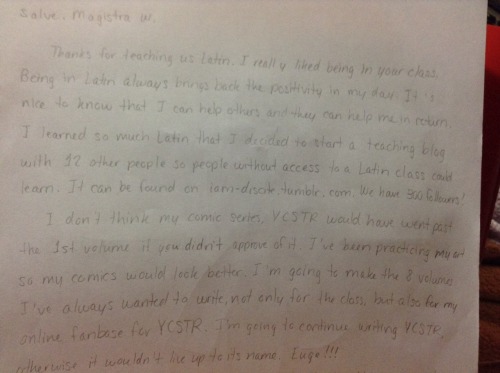 Salve, Magistra W,
Thanks for teaching us Latin. I really liked being in your class.
Being in Latin always brings back the positivity in my day. It's
nice to know that I can help others and they can help me in return.
I learned so much Latin that I decided to start a teaching blog
with 12 other people so people without access to a Latin class could
learn. It can be found on iam-discite.tumblr.com. We have 300 followers!
I don't think my comic series, YCSTR would have went past
the 1st volume if you didn't approve of it. I've been practicing my art
so my comics would look better. I'm going to make the 8 volume.
I've always wanted to write, not only for the class, but also for my
online fanbase for YCSTR. I'm going to continue writing YCSTR,
otherwise it wouldn't live up to its name. Euge!!!